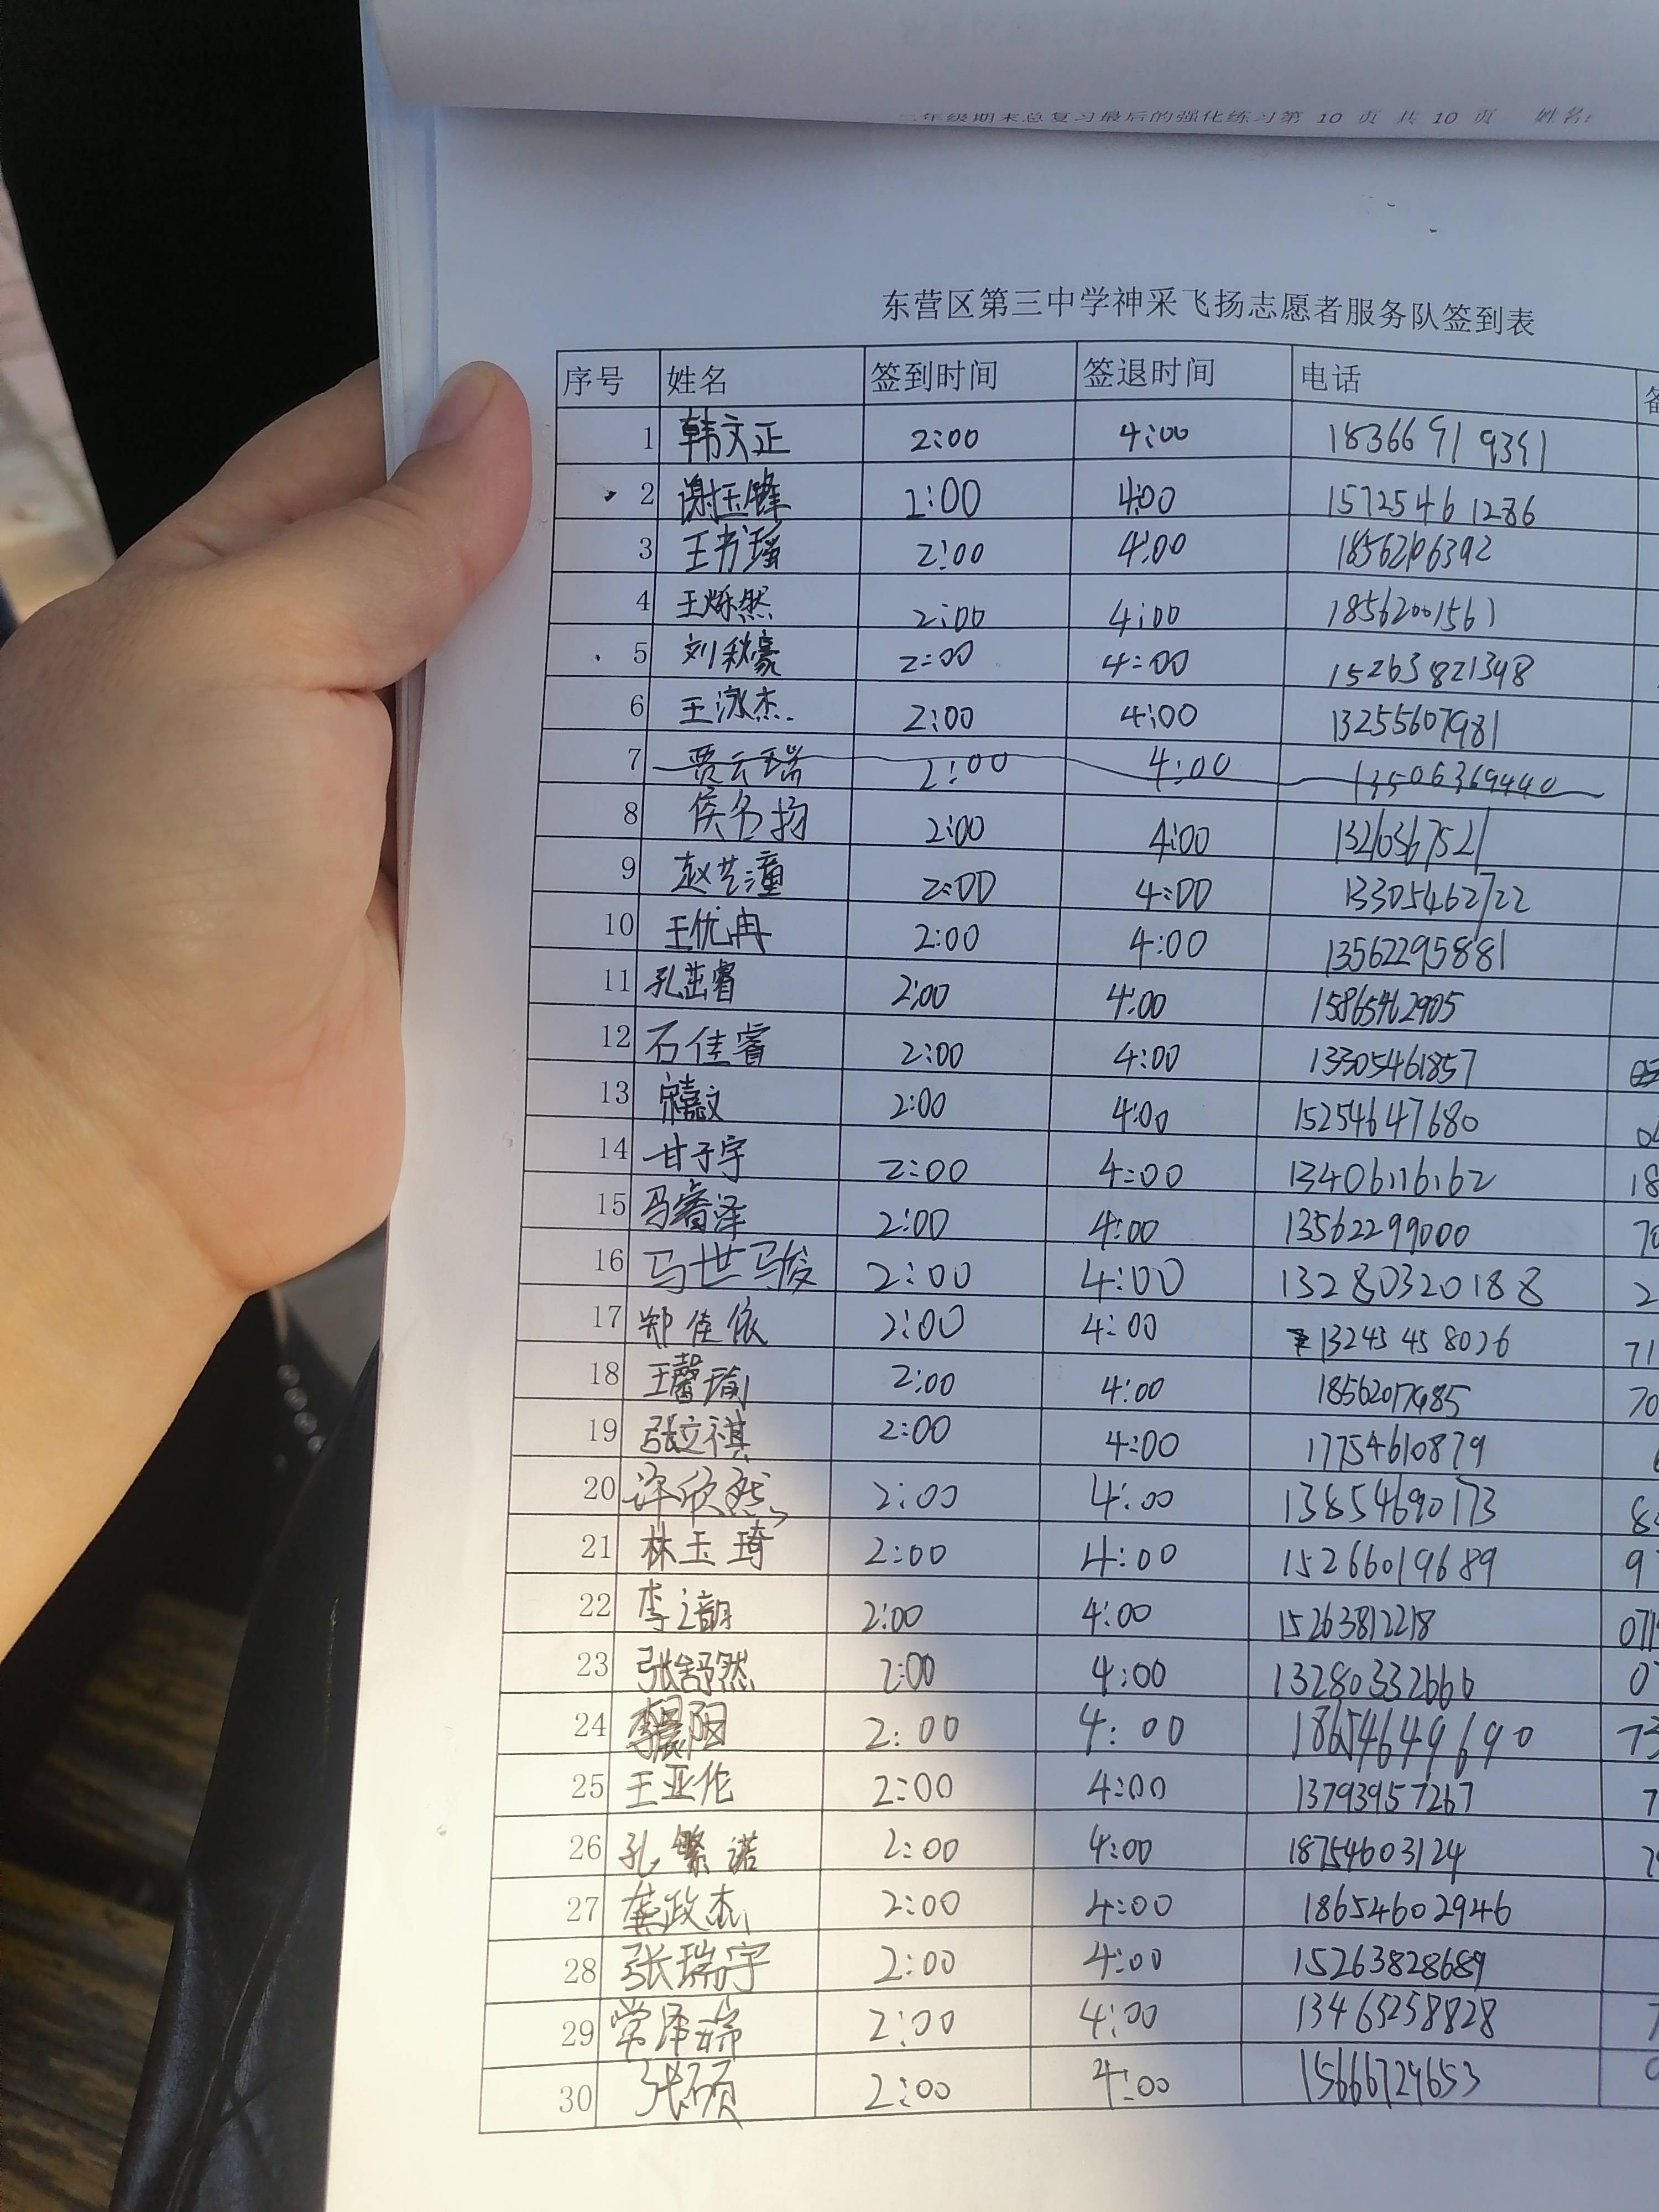 二年级期末总复习最后的强化练习第 10 页 共 10 页 姓名:
东营区第三中学神采飞扬志愿者服务队签到表
序号 姓名 签到时间 签退时间 电话
1 韩文正 2:00 4:00 18366919391
2 谢玉锋 2:00 4:00 15725461286
3 王书瑶 2:00 4:00
4 王烁然 2:00 4:00 18562001561
5 刘秋豪 2:00 4:00 15263821348
6 王泳杰 2:00 4:00 13255607981
7 贾云瑞 2:00 4:00 13506369440
8 侯名扬 2:00 4:00 13210367521
9 赵艺潼 2:00 4:00 13305462722
10 王优冉 2:00 4:00 13562295881
11 孔茁睿 2:00 4:00 15865462905
12 石佳睿 2:00 4:00 13305461857
13 宋嘉文 2:00 4:00 15254647680
14 甘子宇 2:00 4:00 13406116162 18
15 马睿泽 2:00 4:00 13562299000 70
16 马世骏 2:00 4:00 13280320188 2
17 郑佳依 2:00 4:00 13245458026 71
18 王馨瑜 2:00 4:00 18562017485 70
19 张立祺 2:00 4:00 17754610879
20 许欣然 2:00 4:00 13854690173
21 林玉琦 2:00 4:00 15266019689 9
22 李之韵 2:00 4:00 15263812218 071
23 张舒然 2:00 4:00 13280332666 0
24 李晨阳 2:00 4:00 18654649690 73
25 王亚伦 2:00 4:00 13793957267 7
26 孔繁诺 2:00 4:00 18754603124
27 龚政杰 2:00 4:00 18654602946
28 张瑞宇 2:00 4:00 15263828689
29 常泽瑞 2:00 4:00 13465258828 7
30 张硕 2:00 4:00 15666724653